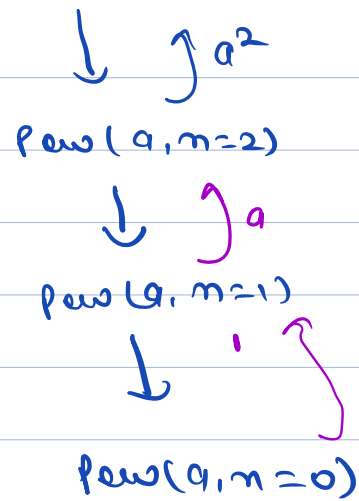 a²
Pow(a, n=2)
a
Pow(a, n=1)
1
Pow(a, n=0)